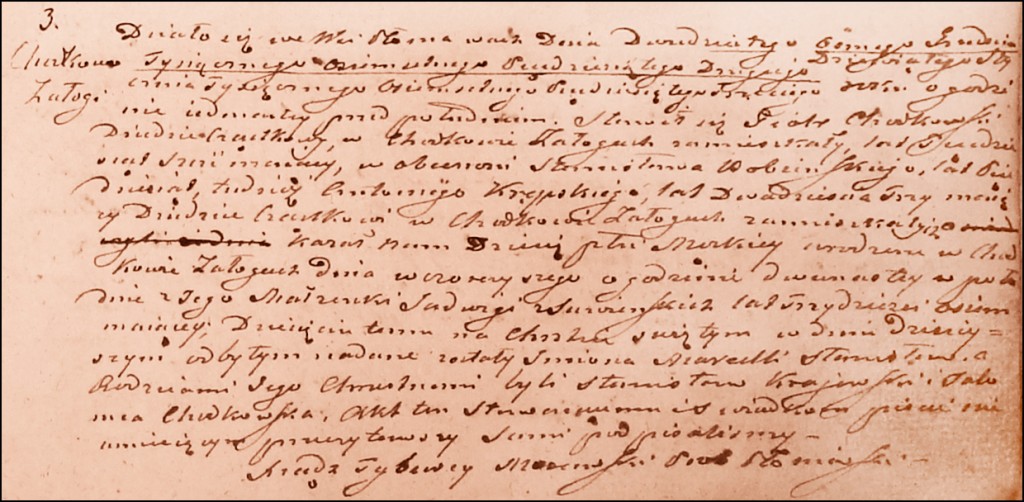 3.
Chodkowo
Załogi
Działo się we Wsi Słoma wach Dnia Dwudziestego ósmego Grudnia
Tysiącznego osiemsetnego Pięćdziesiątego Drugiego Dziewiątego Sty
cznia Tysiącznego Osiemsetnego Pięćdziesiątego trzeciego roku o godzi
nie iedenastey przed południem. Stawił się Piotr Chodkowski
Dziedzic Cząstkowy, w Chodkowie Załogach zamieszkały, lat
maiący, w obecności Stanisława lat Pięć
dziesiąt, tudzież Antoniego Krępskiego, lat Dwadzieścia trzy maią
cy Dziedzice Cząstkowi w Chodkowie Załogach zamieszkałych
okazał nam Dziecię płci Męzkiey urodzone w Chod
kowie Załogach dnia wczorayszego o godzinie dwunastey w połu
dnie z Jego Małżonki Jadwigi z lat trzydzieści osiem
maiącey. Dziecięciu temu na Chrzcie świętym w dniu dzisiey-
szym odbytym nadane zostały Imiona Marcelli Stanisław, a
Rodzicami Jego Chrzestnemi byli Stanisław Krajewski i Salo
mea Chodkowska. Akt ten Stawaiącemu i Swiadkom pisać nie
umieiącym przeczytawszy Sami podpisaliśmy —
Xiądz Prob